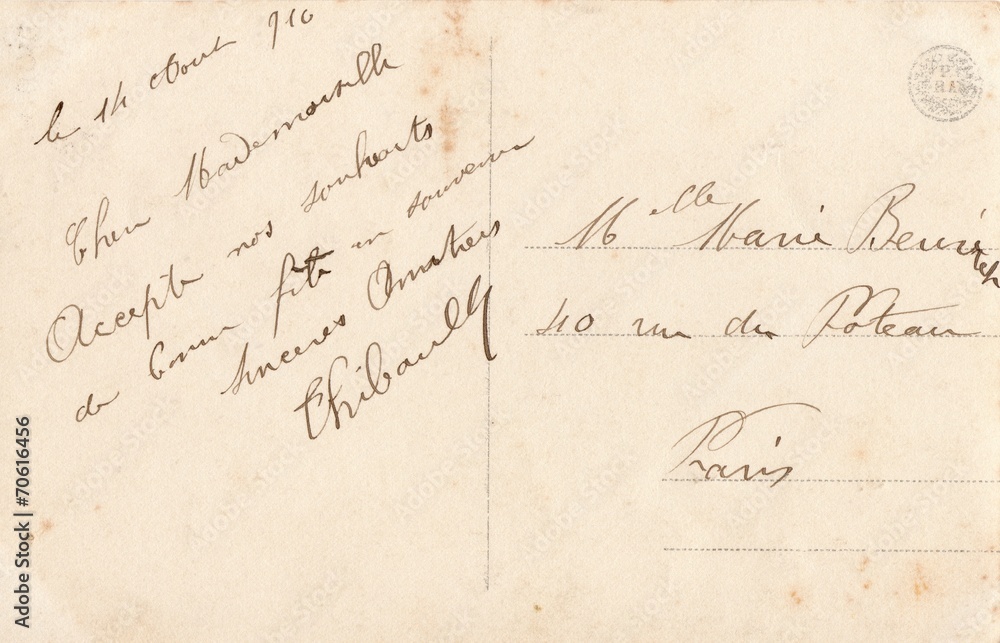 le 14 Aout 910
Cher Mademoiselle
Accepte nos souhaits
de bonne fête en souvenir
sincères Amitiers
Thibault
Mlle Marie
40 rue du Poteau
Paris
Adobe Stock | #70616456